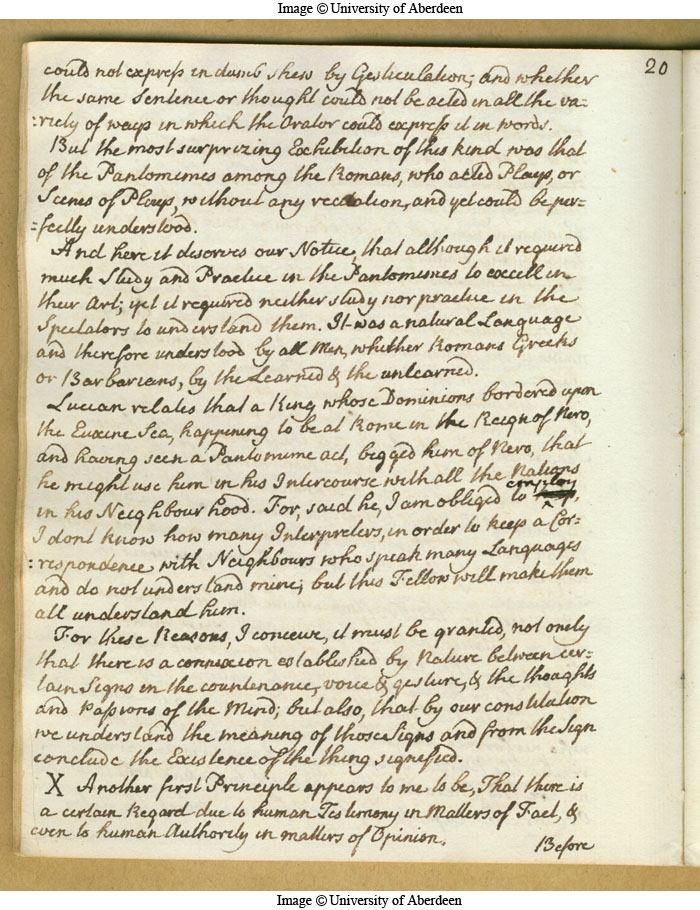 Image © University of Aberdeen
20
could not express in dumb shew by Gesticulation; and whether
the same Sentence or thought could not be acted in all the va=
=riety of ways in which the Orator could express it in words.
But the most surprizing Exhibition of this kind was that
of the Pantomimes among the Romans, who acted Plays, or
Scenes of Plays, without any recitation, and yet could be per=
=fectly understood.
And here it deserves our Notice, that although it required
much Study and Practice in the Pantomimes to excell in
their Art; yet it required neither study nor practice in the
Spectators to understand them. It was a natural Language
and therefore understood by all Men, whether Romans Greeks
or Barbarians, by the Learned & the unlearned.
Lucian relates that a King whose Dominions bordered upon
the Euxine Sea, happening to be at Rome in the Reign of Nero,
and having seen a Pantomime act, begged him of Nero, that
he might use him in his Intercourse with all the Nations
in his Neighbourhood. For, said he, I am obliged to employ,
I dont know how many Interpreters, in order to keep a Cor=
=respondence with Neighbours who speak many Languages
and do not understand mine; but this Fellow will make them
all understand him.
For these Reasons, I conceive, it must be granted, not onely
that there is a connexion established by Nature between cer=
tain Signs in the countenance, voice & gesture, & the thoughts
and Passions of the Mind; but also, that by our constitution
we understand the meaning of those Signs and from the Sign
conclude the Existence of the thing signified.
X Another first Principle appears to me to be, That there is
a certain Regard due to human Testimony in Matters of Fact, &
even to human Authority in matters of Opinion.
Before
Image © University of Aberdeen